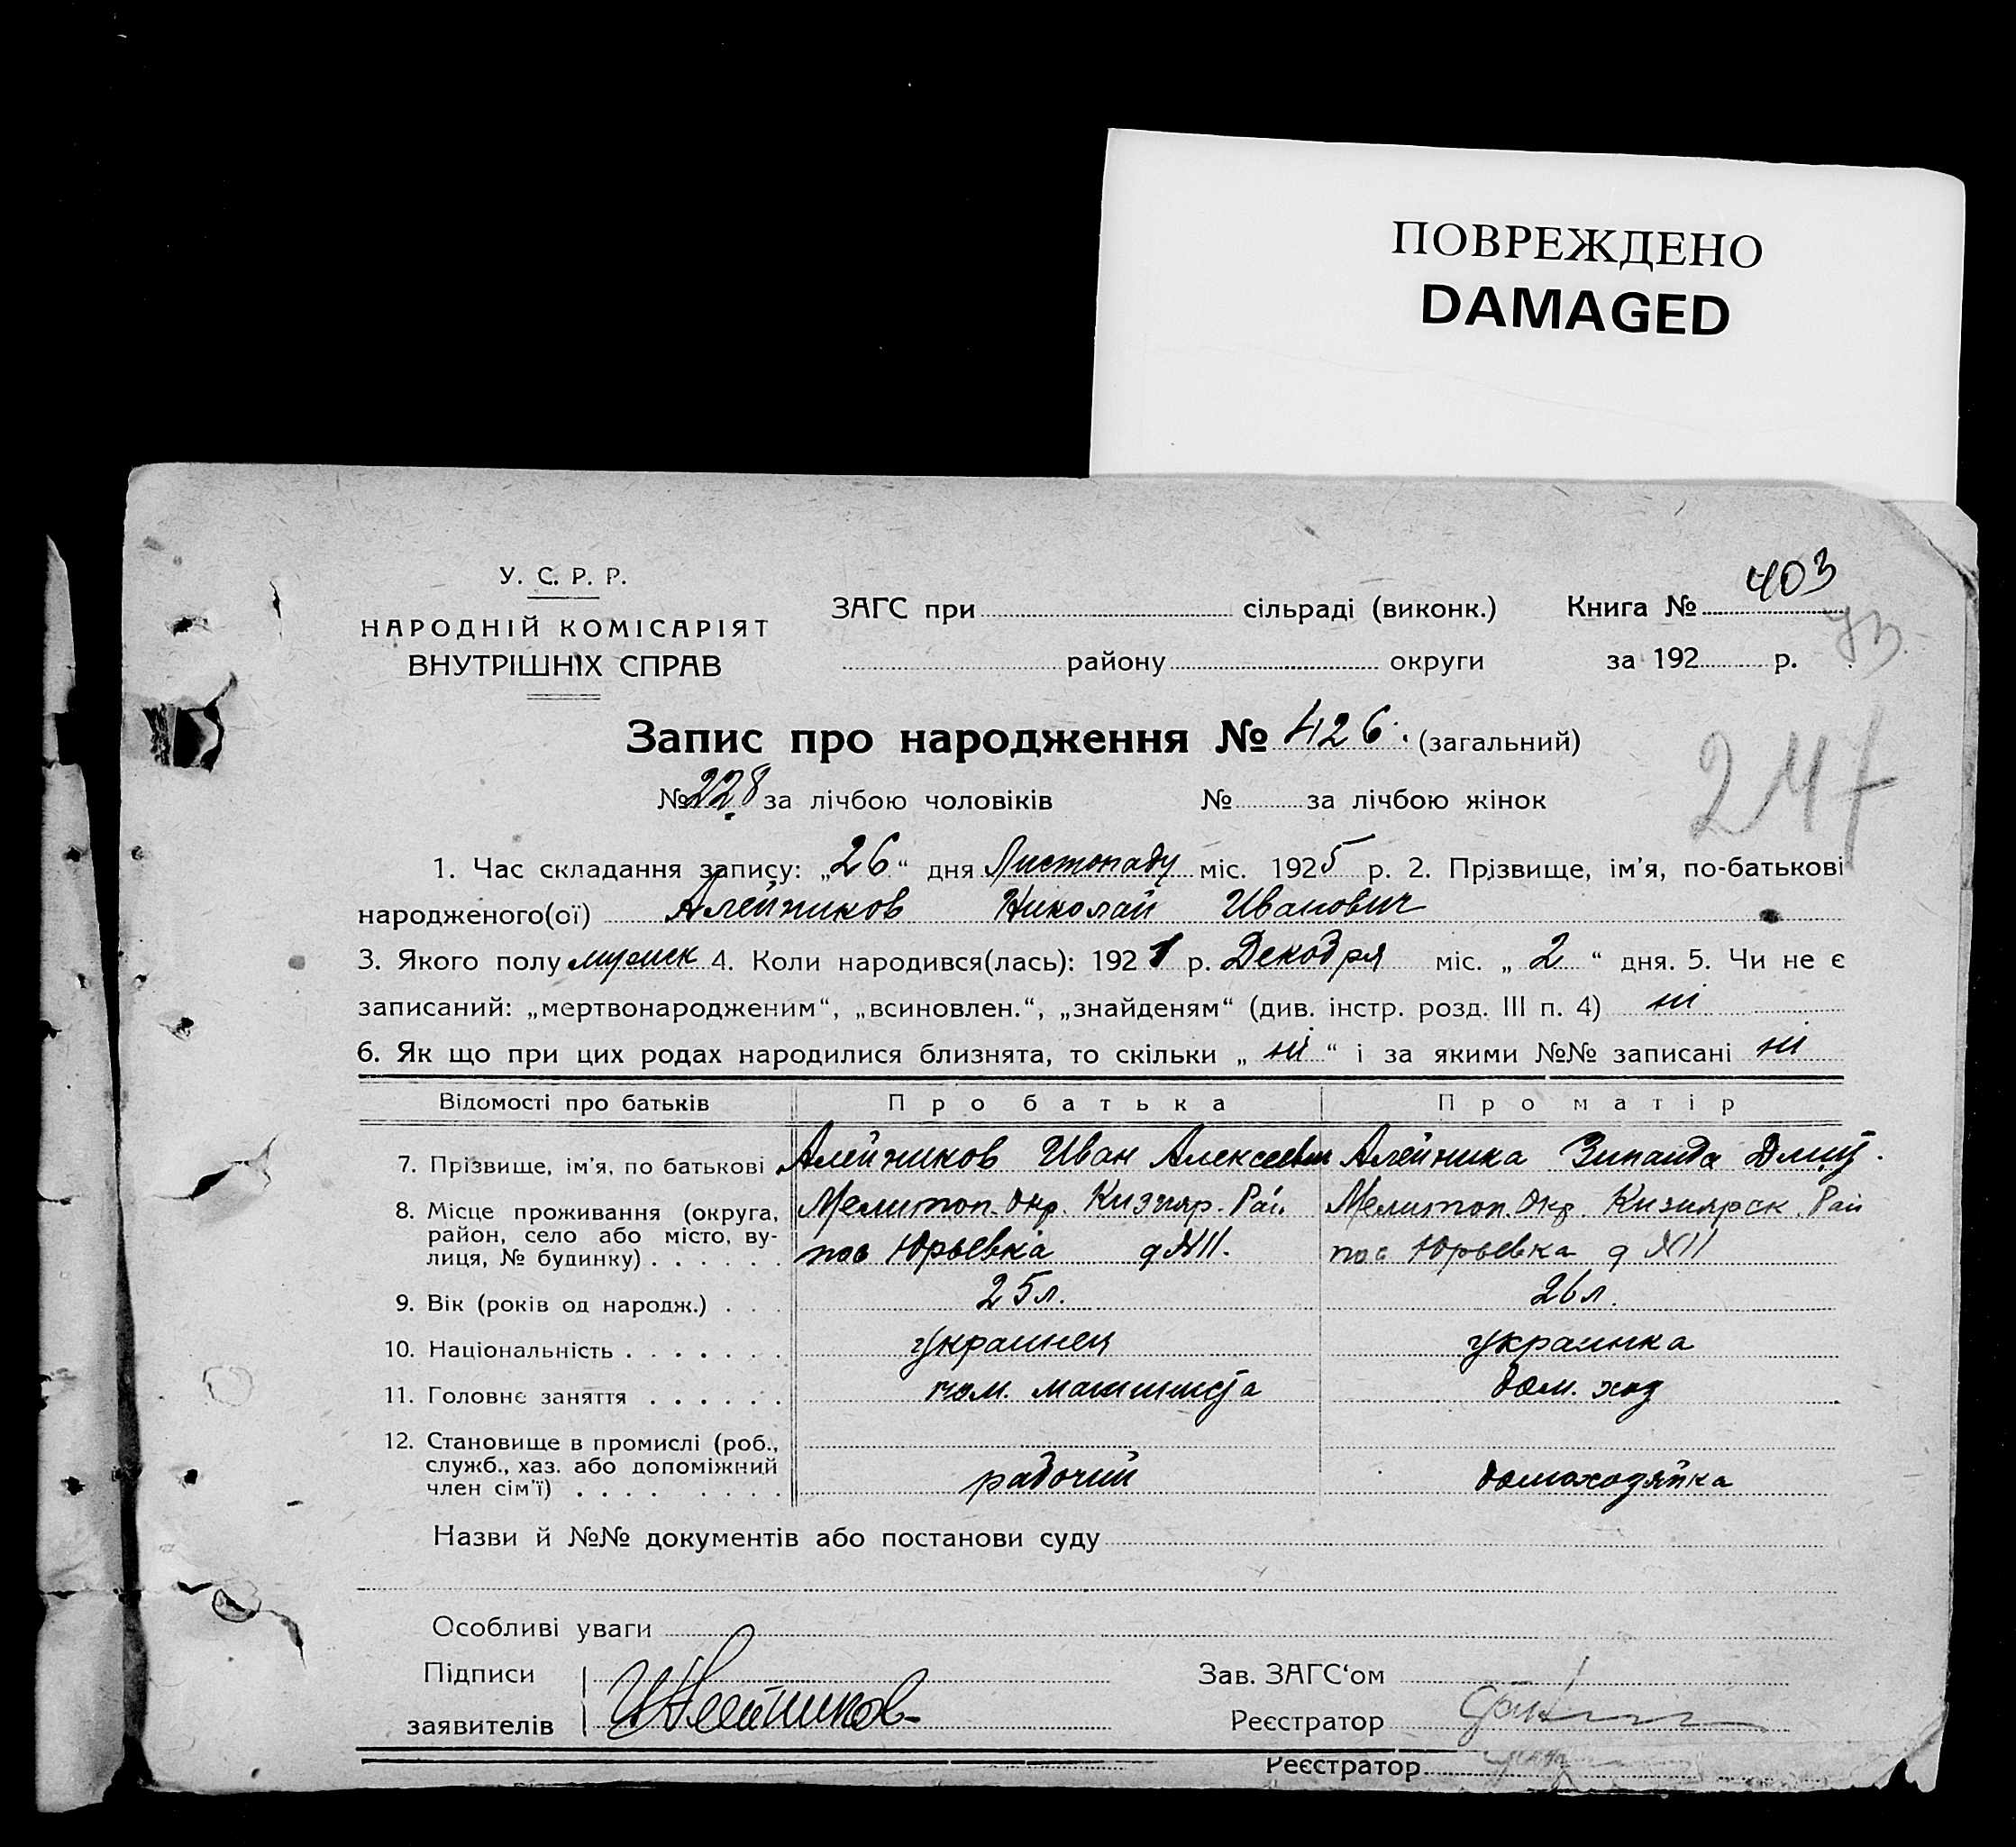 ПОВРЕЖДЕНО
DAMAGED
У. С. Р. Р.
НАРОДНІЙ КОМІСАРІЯТ
ВНУТРІШНІХ СПРАВ
ЗАГС при сільраді (виконк.) Книга № 403
району округи за 192 р.
Запис про народження № 426. (загальний)
247
№ 228 за лічбою чоловіків № за лічбою жінок
1. Час складання запису: „26“ дня Листопаду міс. 1925 р. 2. Прізвище, ім'я, по-батькові
народженого(ої) Алейников Николай Иванович
3. Якого полу мужск 4. Коли народився(лась): 1921 р. Декабря міс. „2“ дня. 5. Чи не є
записаний: „мертвонародженим“, „всиновлен.“, „знайденям“ (див. інстр. розд. III п. 4) ні
6. Як що при цих родах народилися близнята, то скільки „ні“ і за якими №№ записані ні
Відомості про батьків Про батька Про матір
7. Прізвище, ім'я, по батькові Алейников Иван Алексеевич Алейника Зинаида Дмит.
8. Місце проживання (округа, Мелитоп. Окр. Кизияр. Рай. Мелитоп. Окр. Кизиярск. Рай
район, село або місто, ву-
лиця, № будинку) . . . . . . пос Юрьевка д №11. пос Юрьевка д №11
9. Вік (років од народж.) . . . 25 л. 26 л.
10. Національність . . . . . . . украинец украинка
11. Головне заняття . . . . . . пом. машиниста дом. хоз
12. Становище в промислі (роб.,
служб., хаз. або допоміжний
член сім'ї) . . . . . . . . . рабочий домохозяйка
Назви й №№ документів або постанови суду
Особливі уваги
Підписи
заявителів И Алейников
Зав. ЗАГС'ом
Реєстратор
Реєстратор